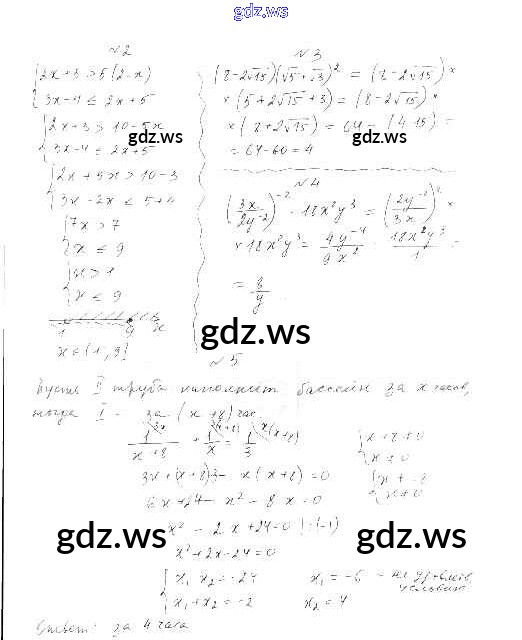 gdz.ws
№2
{2x+3>5(2-x)
{3x-4≤2x+5
{2x+3>10-5x
{3x-4≤2x+5
{2x+5x>10-3
{3x-2x≤5+4
{7x>7
{x≤9
{x>1
{x≤9
1 9 x
x∈(1;9]
№3
(8-2√15)(√5+√3)² = (8-2√15)×
×(5+2√15+3)=(8-2√15)×
×(8+2√15)=64-(4·15)=
=64-60=4
№4
(3x/2y⁻²)⁻² · 18x²y³ = (2y⁻²/3x)² ×
×18x²y³ = 4y⁻⁴/9x² · 18x²y³/1 =
= 8/y
gdz.ws
gdz.ws
gdz.ws
№5
Пусть II труба наполнит бассейн за x часов,
тогда I - за (x+8) час.
1/(x+8) + 1/x = 1/3
{x+8≠0
{x≠0
{x≠-8
{x≠0
3x+(x+8)3-x(x+8)=0
6x+24-x²-8x=0
-x²-2x+24=0 |:(-1)
x²+2x-24=0
{x₁x₂=-24
{x₁+x₂=-2
x₁=-6 - не удовлет. условию
x₂=4
gdz.ws
gdz.ws
Ответ: за 4 часа